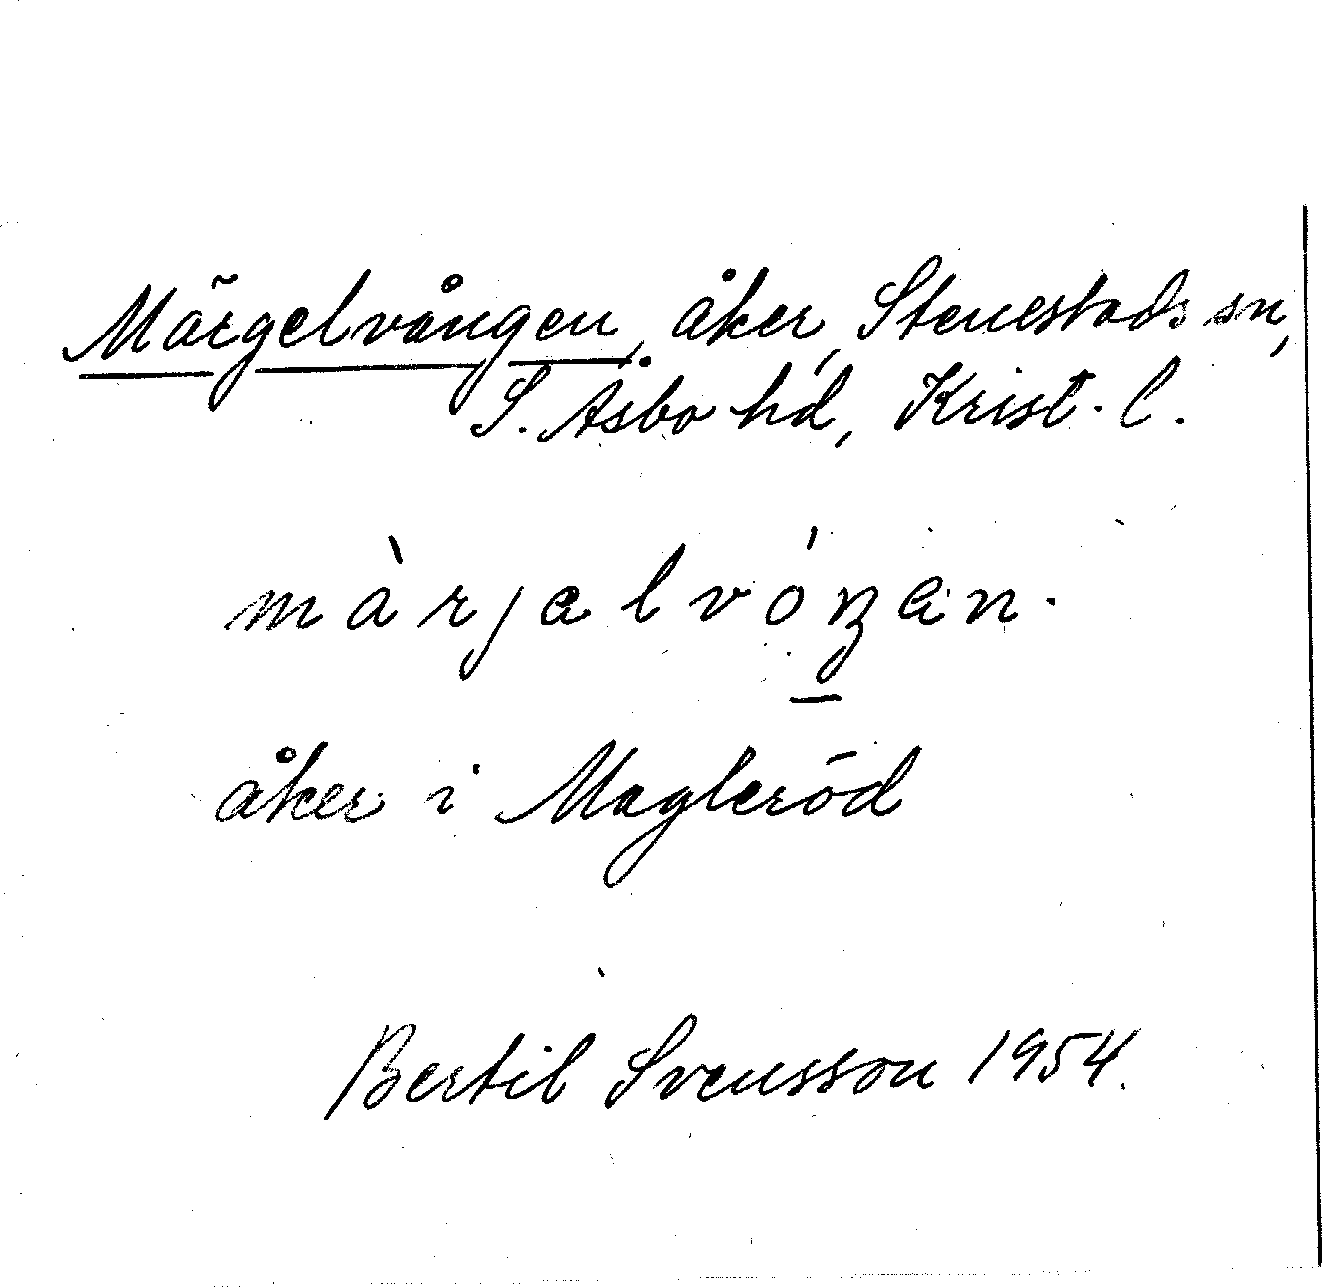 Märgelvången, åker, Stenestads sn,
S. Åsbo hd, Krist. l.
màrjəlvóŋən.
åker i Magleröd
Bertil Svensson 1954.